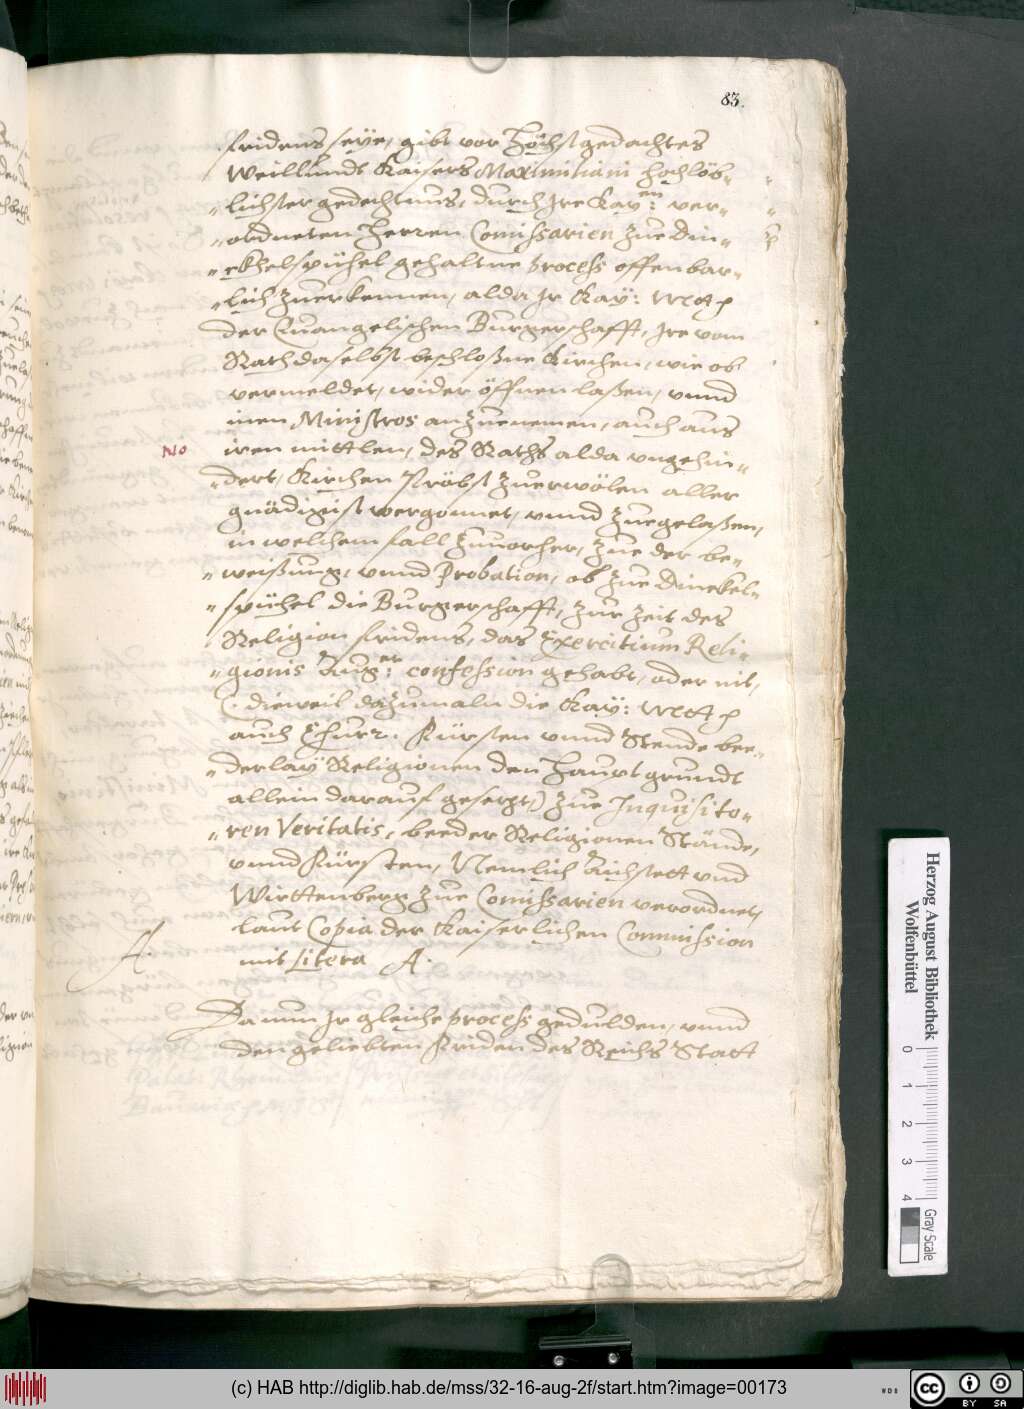 83.
fridens seye, gibt vor Höchstgedachtes
Weillundt Kaisers Maximiliani hochlöb-
-lichster gedechtnus, durch Ire Kay:en ver-
-ordneten Herren Comissarien zue Din-
-ckhelspühel gehaltne process offenbar-
-lich zuerkennen, alda Ir Kay: Mtt
der Euangelischen Burgerschafft, Ire vom
Rath daselbst beschloßne Kirchen, wie ob
vermeldet, wider öffnen laßen, vnnd
inen Ministros anzuenemen, auch aus
NB
iren mittlen, des Raths alda vngehin-
-dert, Kirchen Pröbst zuerwölen aller
gnädigist vergonnet, vnnd zuegelaßen,
in welchem fall zuuorher, zue der be-
-weißung, vnnd Probation, ob zue Dinckel-
-spühel die Burgerschafft, zur zeit des
Religion fridens, das Exercitium Reli-
-gionis Aug:er confession gehabt, oder nit,
(dieweil dazumaln die Kay: Mtt
auch Churf. Fürsten vnnd Stende bee-
-derlay Religionen den Hauptgrundt
allein darauf gesetzt,) zue Inquisito-
-ren Veritatis, beeder Religionen Stände,
vnnd Fürsten, Nemlich Aichstett vnd
Wirttenberg zue Comissarien verordnet,
laut Copia der Kaiserlichen Commission
A.
mit Litera A.
Da nun Ir gleiche process gedulden, vnnd
den geliebten Friden des Reichs Statt
Herzog August Bibliothek
Wolfenbüttel
0 1 2 3 4
Gray Scale
(c) HAB http://diglib.hab.de/mss/32-16-aug-2f/start.htm?image=00173
WDB
cc BY SA